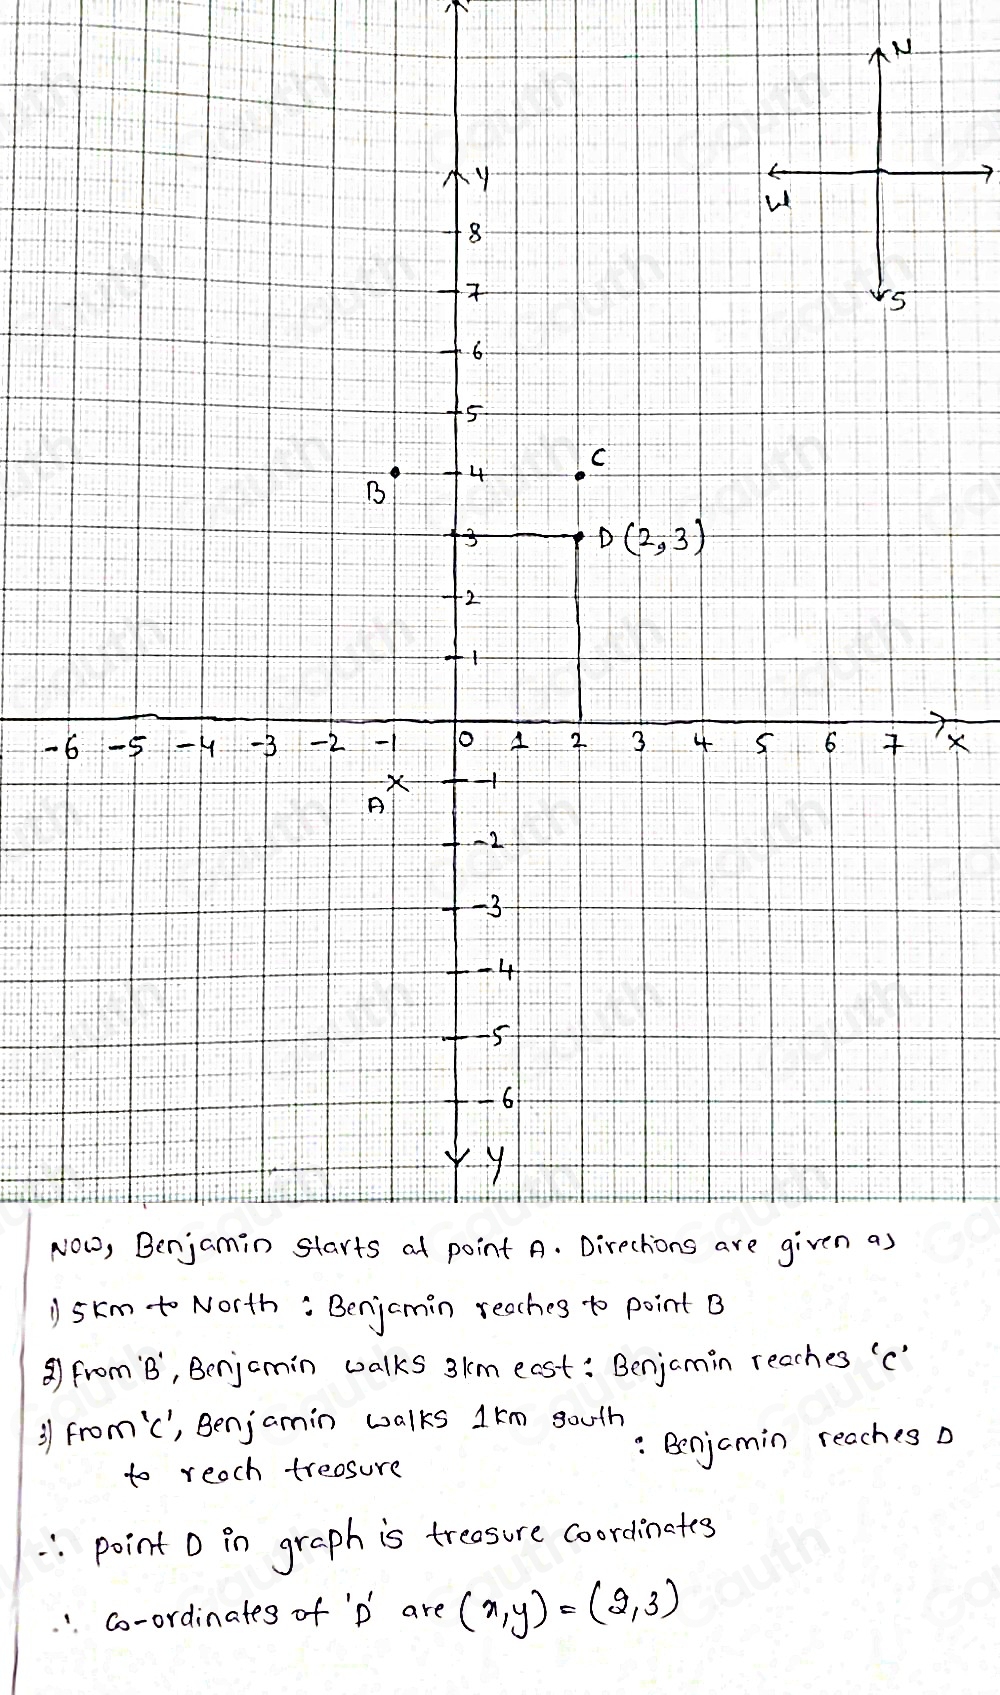 N
W
S
y
8
7
6
5
4
3
2
1
B
C
D (2,3)
-6 -5 -4 -3 -2 -1 0 1 2 3 4 5 6 7 X
A
-1
-2
-3
-4
-5
-6
y
Now, Benjamin starts at point A. Directions are given as
1) 5km to North : Benjamin reaches to point B
2) from 'B', Benjamin walks 3km east : Benjamin reaches 'C'
3) from 'C', Benjamin walks 1km south
to reach treasure : Benjamin reaches D
∴ point D in graph is treasure coordinates
∴ co-ordinates of 'D' are (x,y) = (2,3)
Gauth